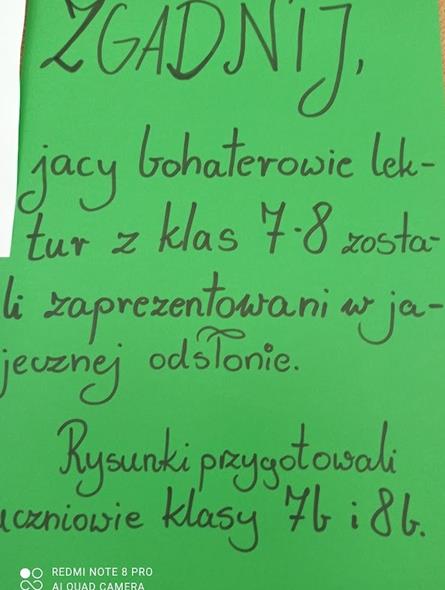 ZGADNIJ,
jacy bohaterowie lek-
tur z klas 7-8 zosta-
li zaprezentowani w ja-
jecznej odsłonie.
Rysunki przygotowali
uczniowie klasy 7b i 8b.
REDMI NOTE 8 PRO
AI QUAD CAMERA